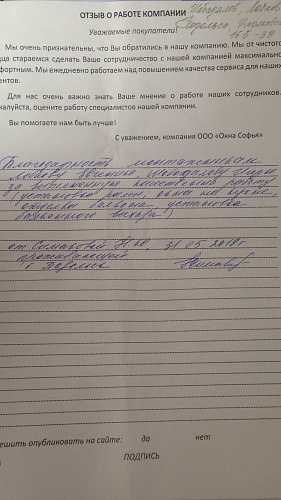 ОТЗЫВ О РАБОТЕ КОМПАНИИ
Уважаемые покупатели!
Подольск,
156-39
Мы очень признательны, что Вы обратились в нашу компанию. Мы от чистого
ца стараемся сделать Ваше сотрудничество с нашей компанией максимально
фортным. Мы ежедневно работаем над повышением качества сервиса для наших
ентов.
Для нас очень важно знать Ваше мнение о работе наших сотрудников.
жалуйста, оцените работу специалистов нашей компании.
Вы помогаете нам быть лучше!
С уважением, компания ООО «Окна Софья»
Благодарность монтажникам
Евгению,
за качественную работу
(установка окна на кухне,
балкона, установка
)
от Симаковой Н.Ю. 31.05.2019г.
проживающей
г. Подольск
ешить опубликовать на сайте: да нет
ПОДПИСЬ